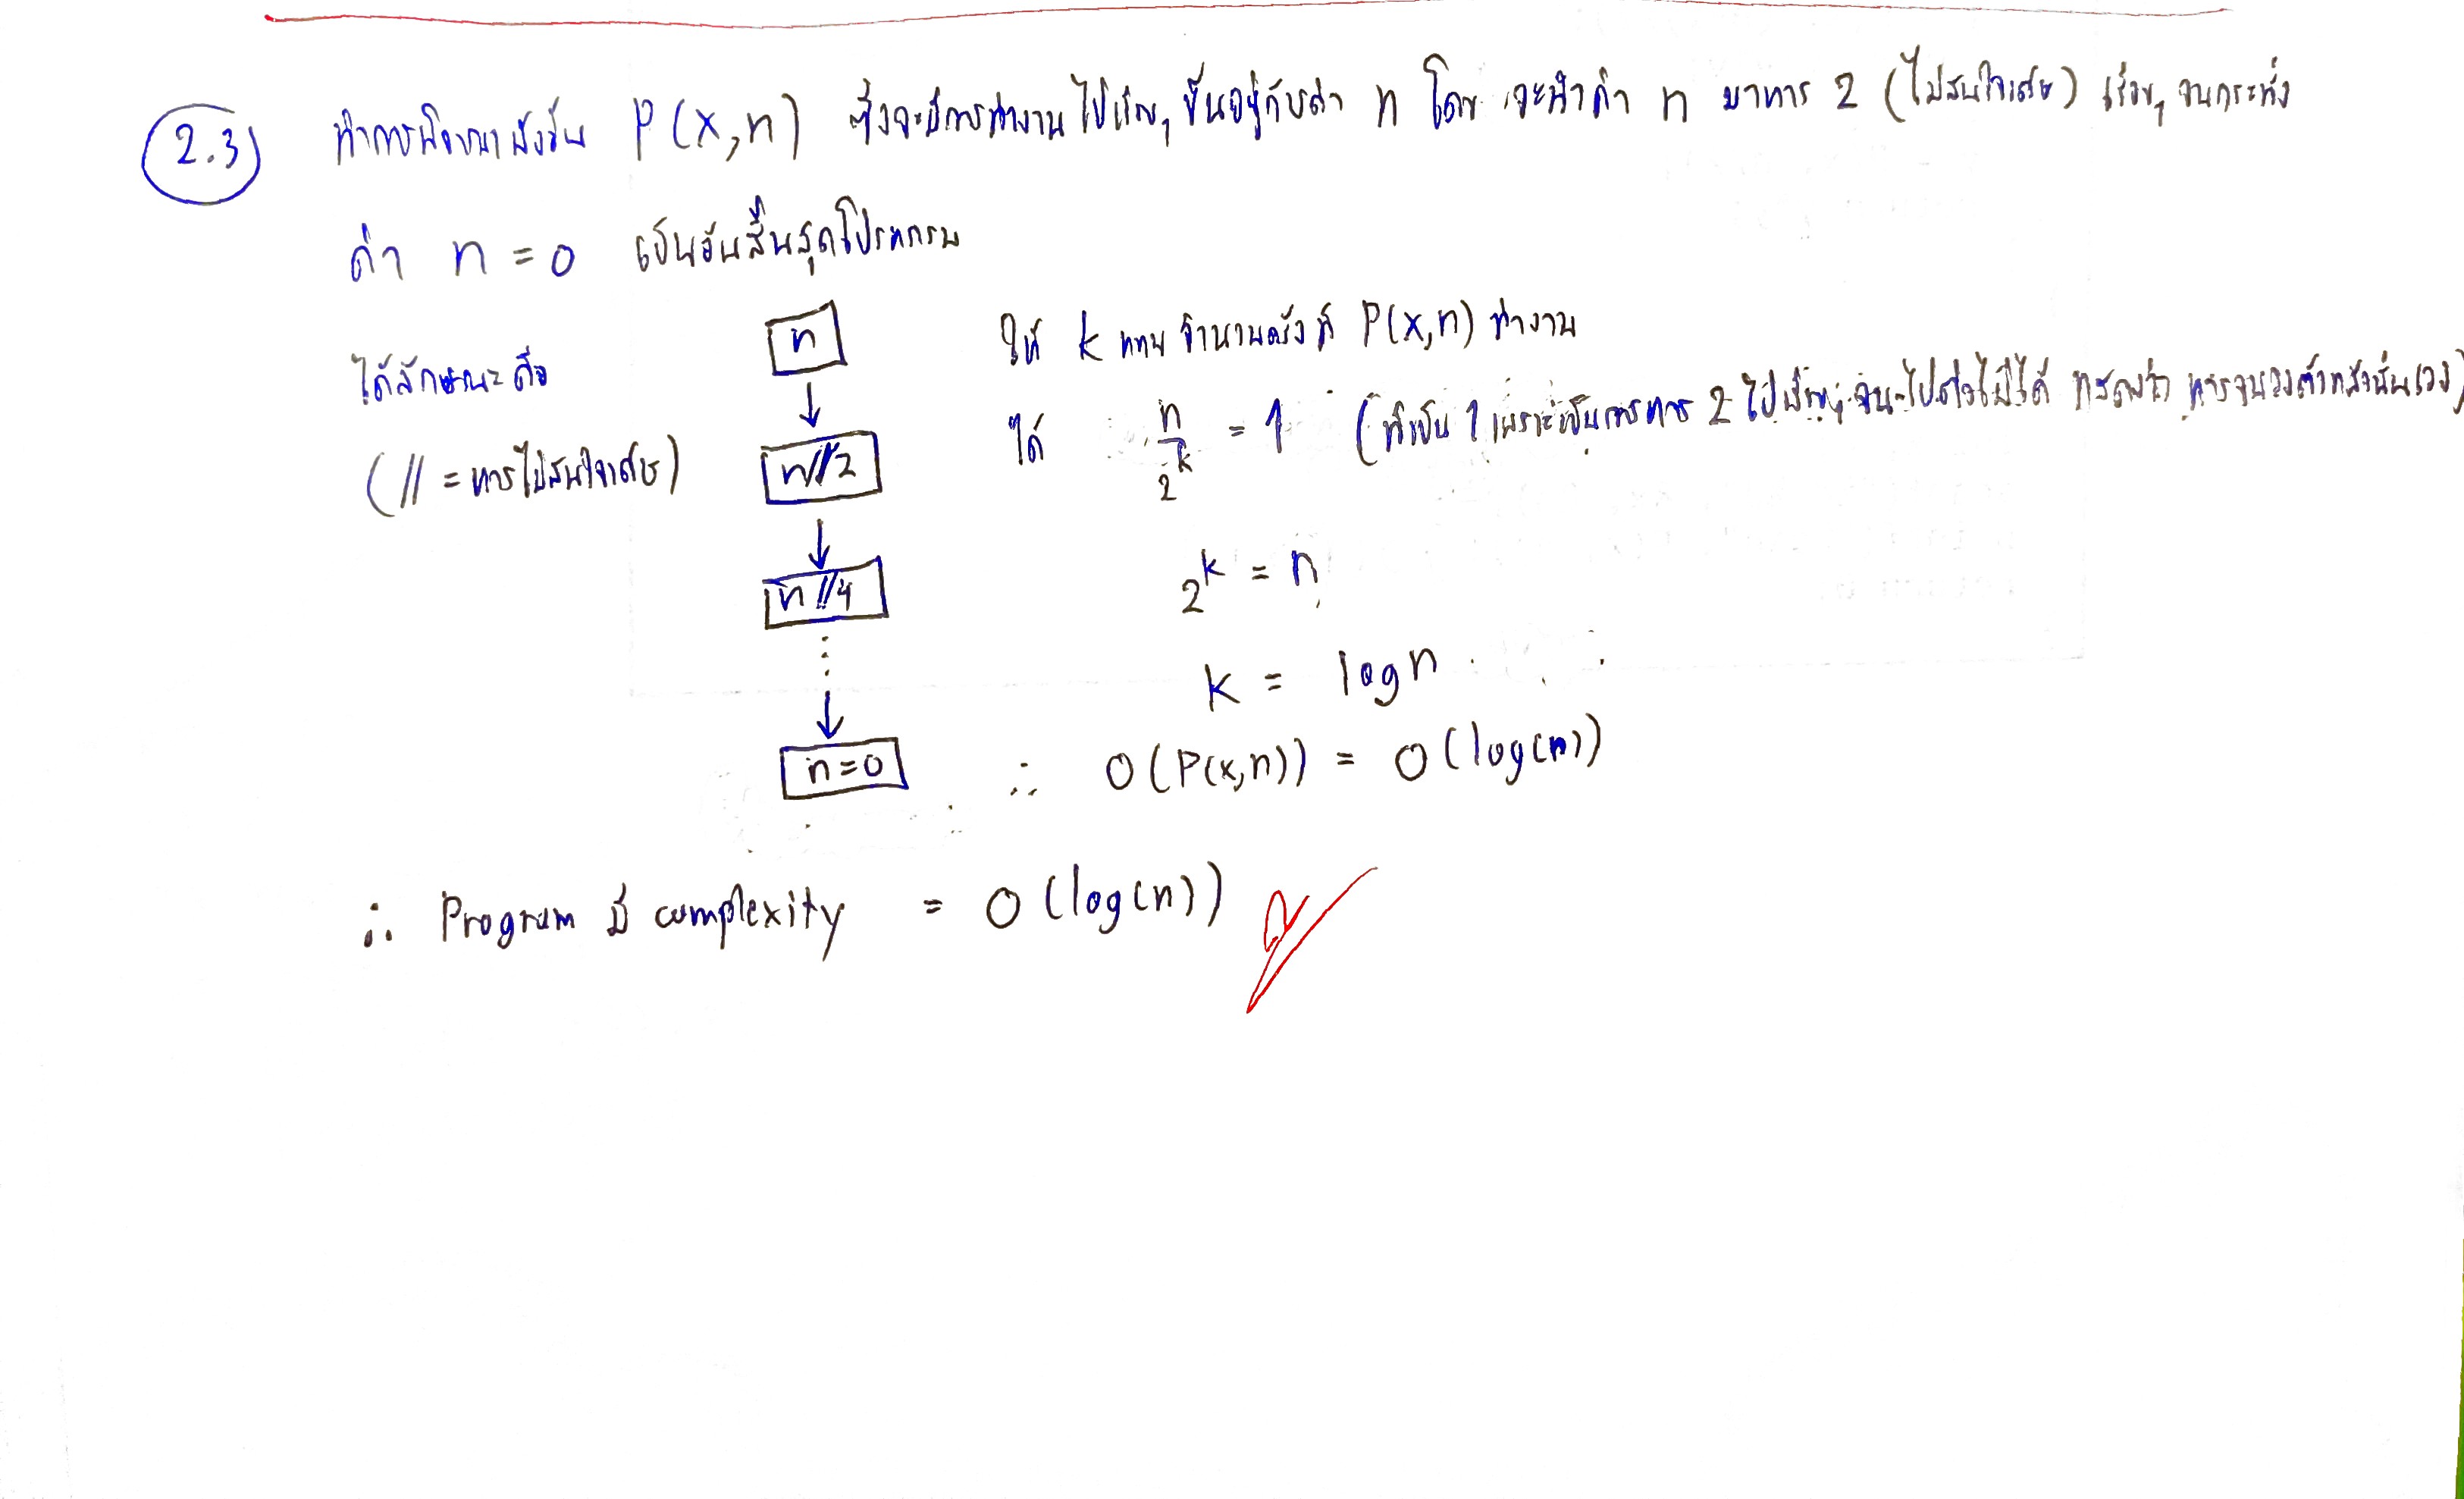 2.3 ทำการพิจารณาฟังชัน P(x,n) ซึ่งจะมีการทำงานไปเรื่อยๆ ขึ้นอยู่กับค่า n โดย จะนำค่า n มาหาร 2 (ไม่สนใจเศษ) เรื่อยๆ จนกระทั่ง
ค่า n = 0 เป็นอันสิ้นสุดโปรแกรม
ได้ลักษณะคือ
(// = หารไม่สนใจเศษ)
n
n//2
n//4
n=0
ให้ k แทน จำนวนครั้งที่ P(x,n) ทำงาน
ได้ n/2^k = 1 (ที่เป็น 1 เพราะเป็นการหาร 2 ไปเรื่อยๆ จนไปต่อไม่ได้ แสดงว่า หารจนลงตัวแล้วนั่นเอง)
2^k = n
k = log n
∴ O(P(x,n)) = O(log(n))
∴ Program มี complexity = O(log(n))